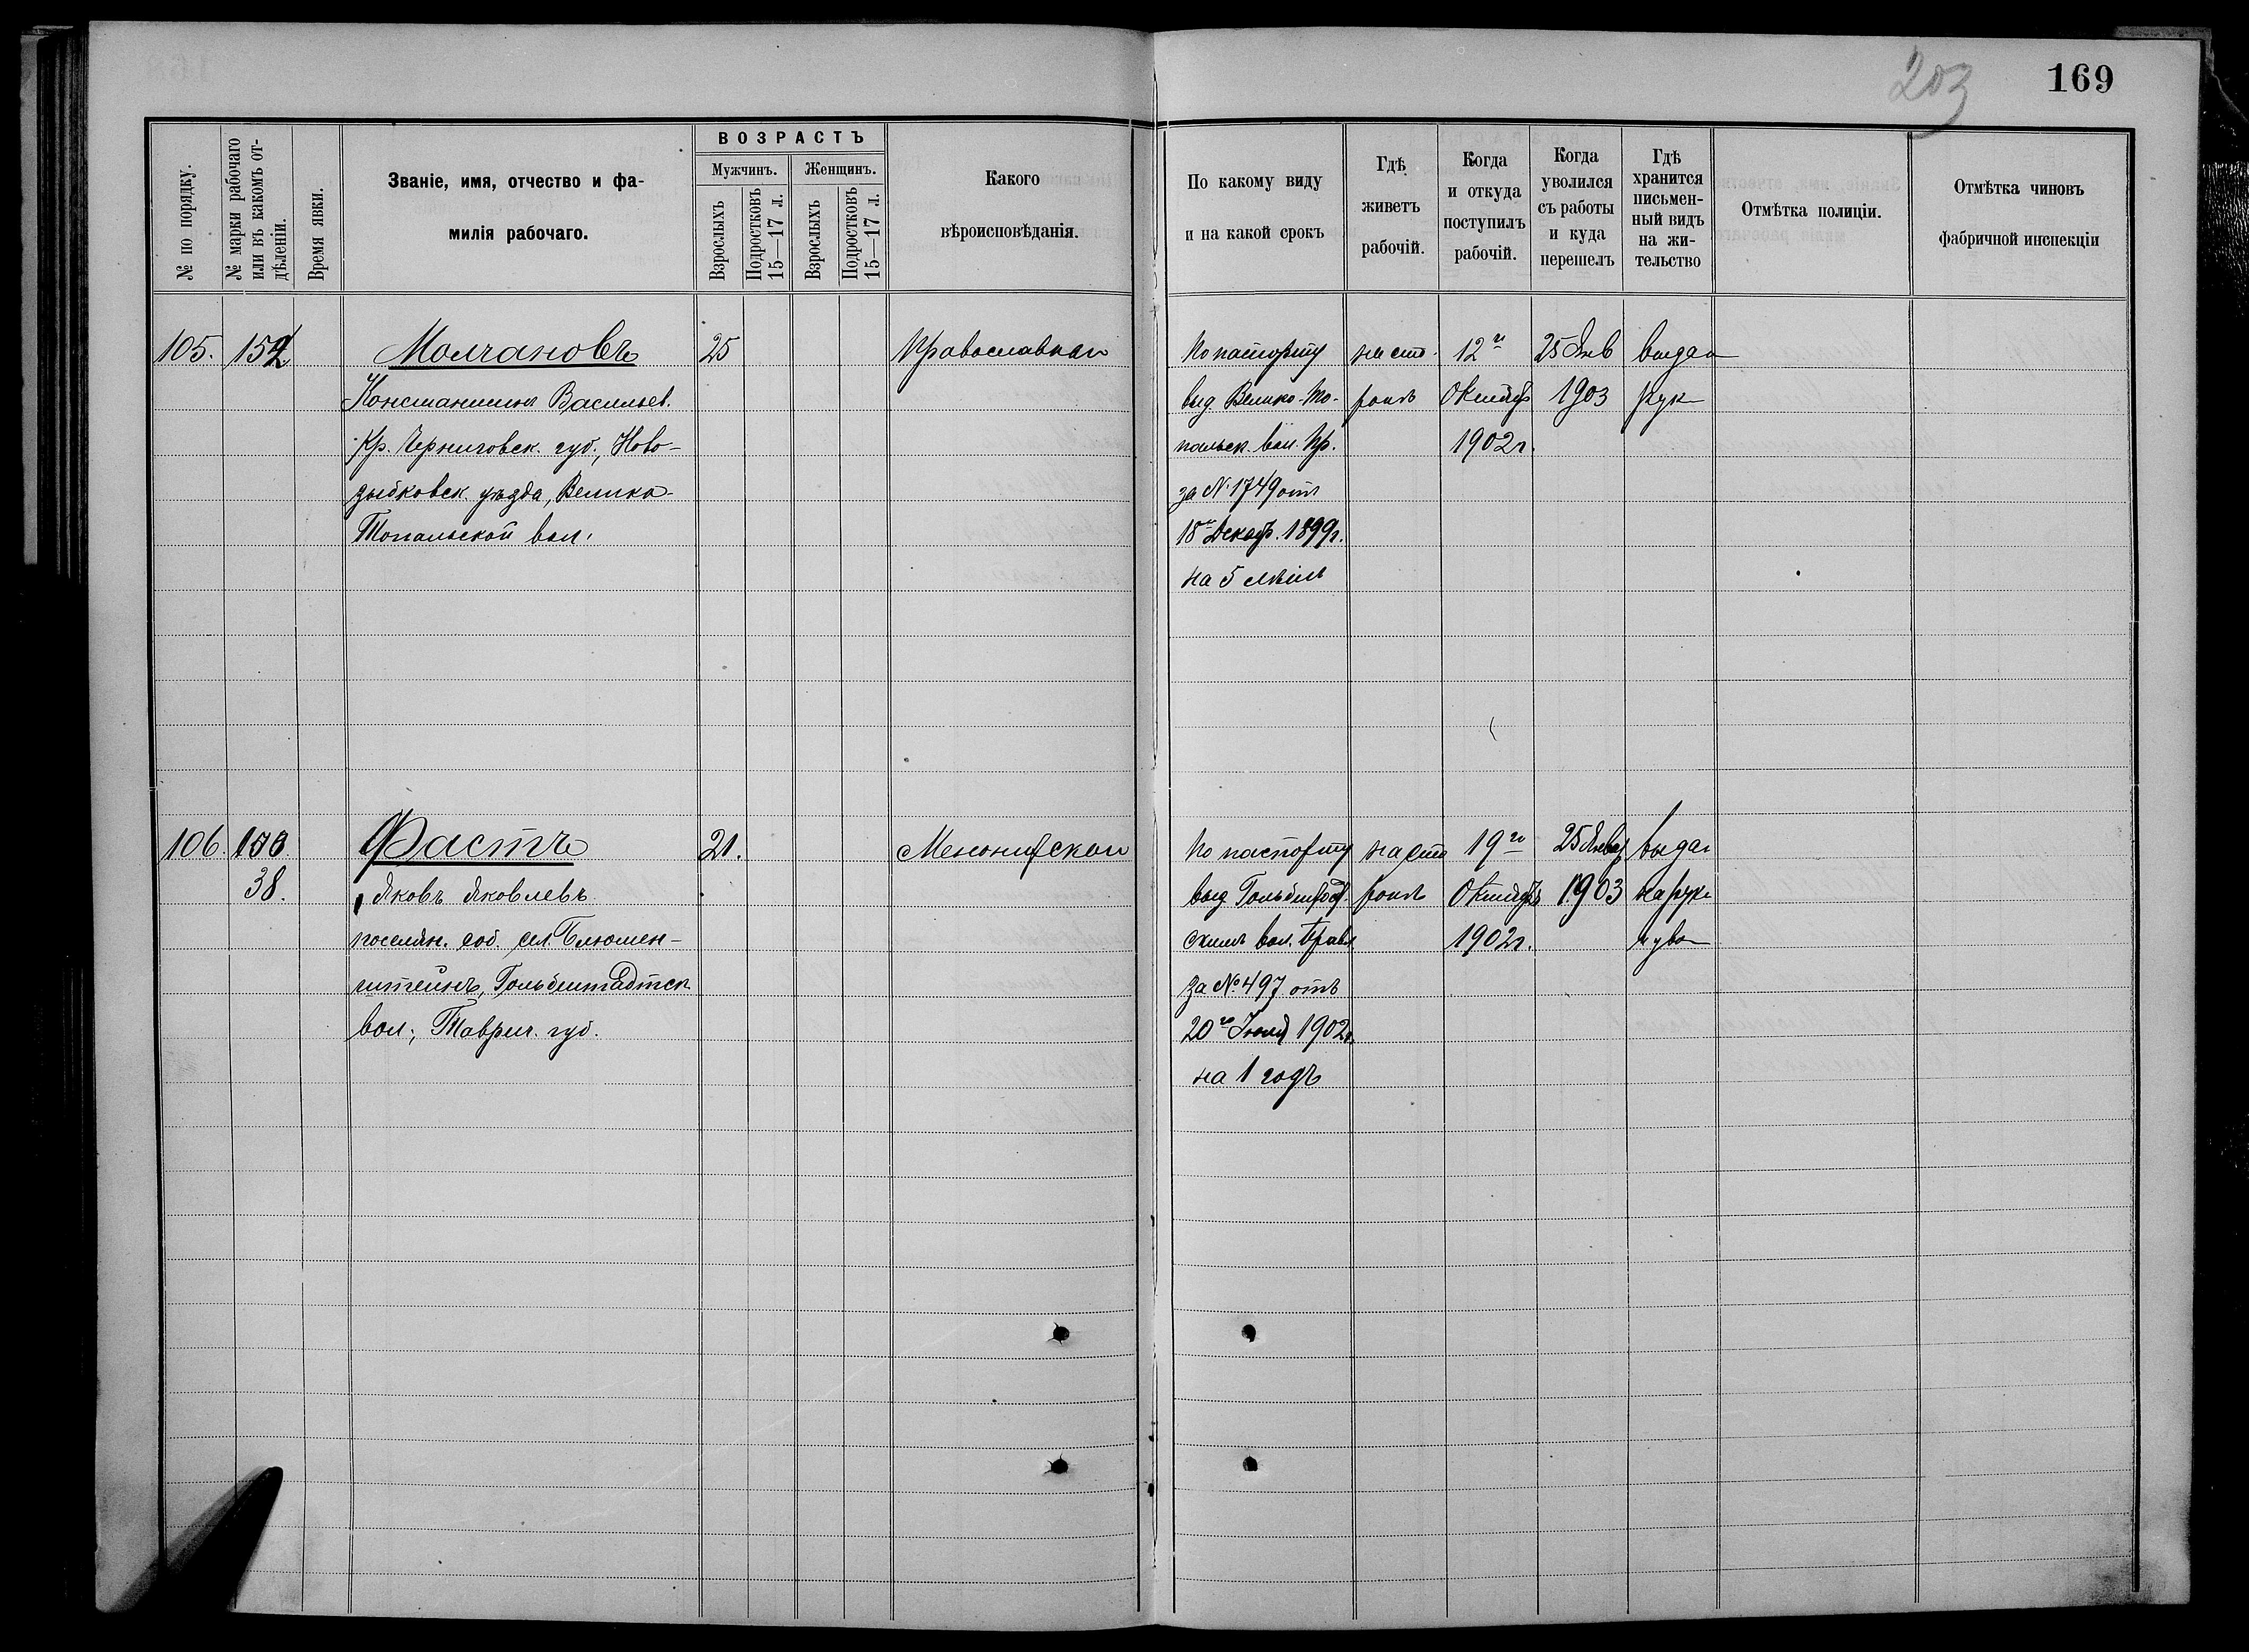 203
169
ВОЗРАСТЪ
Мужчинъ.
Женщинъ.
№ по порядку.
№ марки рабочаго
или въ какомъ от-
дѣленіи.
Время явки.
Званіе, имя, отчество и фа-
милія рабочаго.
Взрослыхъ
Подростковъ
15—17 л.
Взрослыхъ
Подростковъ
15—17 л.
Какого
вѣроисповѣданія.
По какому виду
и на какой срокъ
Гдѣ
живетъ
рабочій.
Когда
и откуда
поступилъ
рабочій.
Когда
уволился
съ работы
и куда
перешелъ
Гдѣ
хранится
письмен-
ный видъ
на жи-
тельство
Отмѣтка полиціи.
Отмѣтка чиновъ
фабричной инспекціи
105.
152
Молчановъ
Константинъ Васильев.
Кр. Черниговск. губ., Ново-
зыбковск. уѣзда, Велико-
Топальской вол.
25
Православнаго
По паспорту
выд. Велико-То-
пальск. вол. Пр.
за № 1749 отъ
18го Декабр. 1899г.
на 5 лѣтъ
на сто-
ронѣ
12го
Октября
1902г.
25 Янв
1903
выдан
рук
106.
153
38.
Фастъ
Яковъ Яковлевъ
поселян. соб. сел. Блюмен-
штейнъ, Гольбштадтск
вол., Таврич. губ.
21.
Менонитскаго
По паспорту
выд. Гольбштадт-
скимъ вол. Правл
за № 497 отъ
20го Іюля 1902г.
на 1 годъ
на сто
ронѣ
19го
Октября
1902г.
25 Январ
1903
выдан
на руки